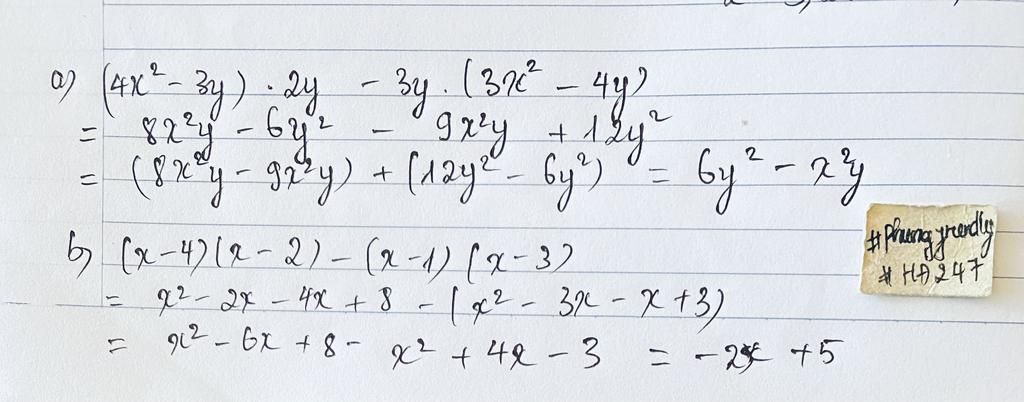 a) (4x² - 3y) . 2y - 3y . (3x² - 4y)
= 8x²y - 6y² - 9x²y + 12y²
= (8x²y - 9x²y) + (12y² - 6y²) = 6y² - x²y
b) (x-4)(x-2) - (x-1)(x-3)
= x² - 2x - 4x + 8 - (x² - 3x - x + 3)
= x² - 6x + 8 - x² + 4x - 3 = -2x + 5
#HD247